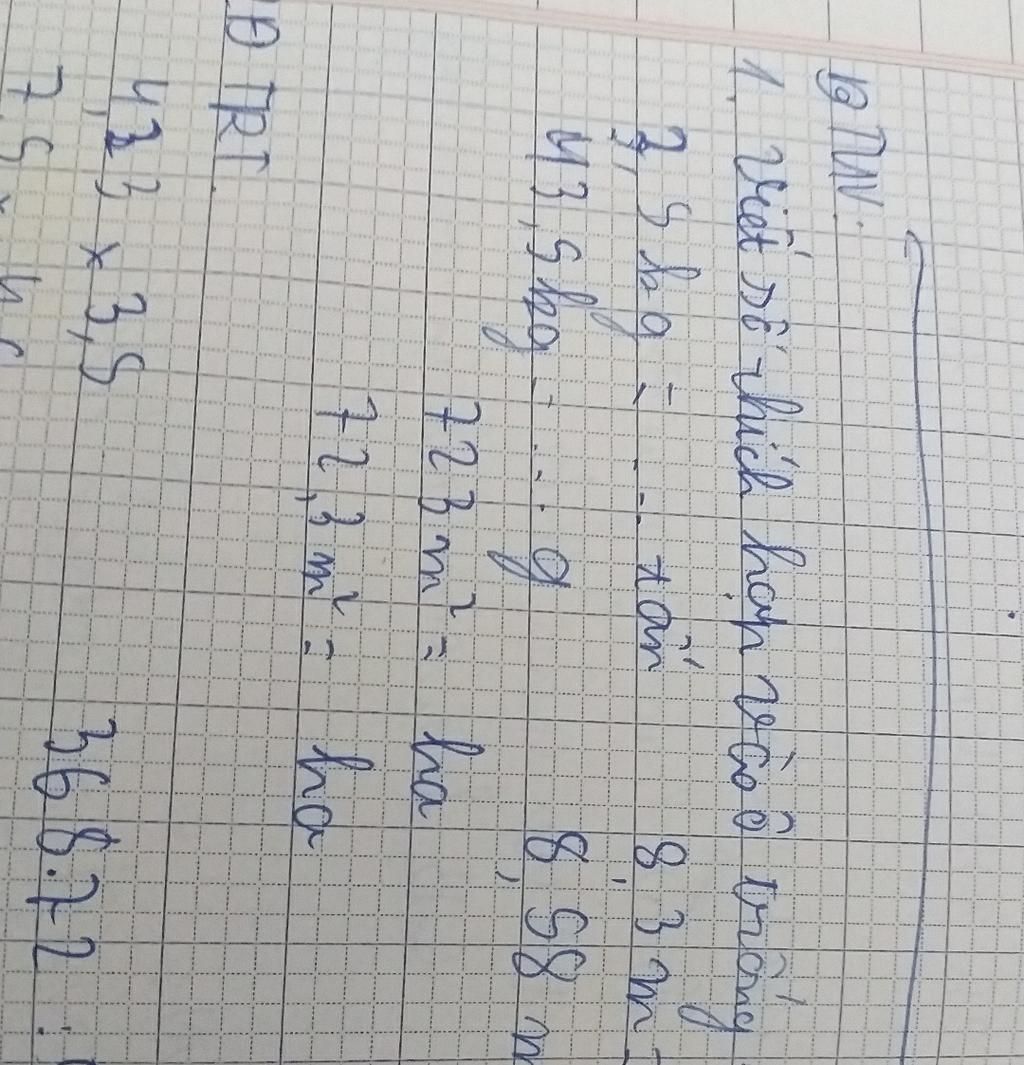 1. Viết số thích hợp vào ô trống
3,5 kg = ... tấn 8,3 m =
43,5kg = ... g 8,58 m
723m² = ha
72,3m² = ha
Đ TRT.
4,33 × 3,5 368.72 :
7,5 ×